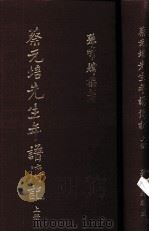 蔡元培先生年譜傳記
上冊
孫常煒編著
蔡元培先生年譜傳記